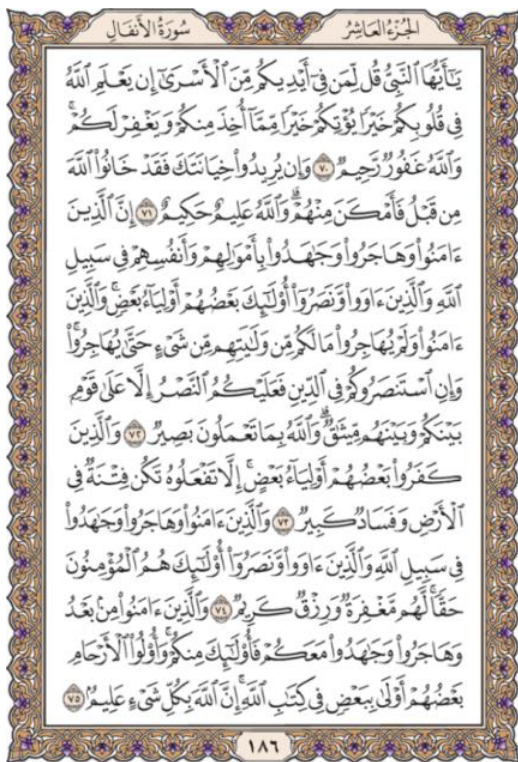 سُورَةُ الأَنفَال
الجُزءُ العَاشِرُ
يَٰٓأَيُّهَا ٱلنَّبِيُّ قُل لِّمَن فِيٓ أَيۡدِيكُم مِّنَ ٱلۡأَسۡرَىٰٓ إِن يَعۡلَمِ ٱللَّهُ
فِي قُلُوبِكُمۡ خَيۡرٗا يُؤۡتِكُمۡ خَيۡرٗا مِّمَّآ أُخِذَ مِنكُمۡ وَيَغۡفِرۡ لَكُمۡۚ
وَٱللَّهُ غَفُورٞ رَّحِيمٞ ٧٠ وَإِن يُرِيدُواْ خِيَانَتَكَ فَقَدۡ خَانُواْ ٱللَّهَ
مِن قَبۡلُ فَأَمۡكَنَ مِنۡهُمۡۗ وَٱللَّهُ عَلِيمٌ حَكِيمٌ ٧١ إِنَّ ٱلَّذِينَ
ءَامَنُواْ وَهَاجَرُواْ وَجَٰهَدُواْ بِأَمۡوَٰلِهِمۡ وَأَنفُسِهِمۡ فِي سَبِيلِ
ٱللَّهِ وَٱلَّذِينَ ءَاوَواْ وَّنَصَرُوٓاْ أُوْلَٰٓئِكَ بَعۡضُهُمۡ أَوۡلِيَآءُ بَعۡضٖۚ وَٱلَّذِينَ
ءَامَنُواْ وَلَمۡ يُهَاجِرُواْ مَا لَكُم مِّن وَلَٰيَتِهِم مِّن شَيۡءٍ حَتَّىٰ يُهَاجِرُواْۚ
وَإِنِ ٱسۡتَنصَرُوكُمۡ فِي ٱلدِّينِ فَعَلَيۡكُمُ ٱلنَّصۡرُ إِلَّا عَلَىٰ قَوۡمِۭ
بَيۡنَكُمۡ وَبَيۡنَهُم مِّيثَٰقٞۗ وَٱللَّهُ بِمَا تَعۡمَلُونَ بَصِيرٞ ٧٢ وَٱلَّذِينَ
كَفَرُواْ بَعۡضُهُمۡ أَوۡلِيَآءُ بَعۡضٍۚ إِلَّا تَفۡعَلُوهُ تَكُن فِتۡنَةٞ فِي
ٱلۡأَرۡضِ وَفَسَادٞ كَبِيرٞ ٧٣ وَٱلَّذِينَ ءَامَنُواْ وَهَاجَرُواْ وَجَٰهَدُواْ
فِي سَبِيلِ ٱللَّهِ وَٱلَّذِينَ ءَاوَواْ وَّنَصَرُوٓاْ أُوْلَٰٓئِكَ هُمُ ٱلۡمُؤۡمِنُونَ
حَقّٗاۚ لَّهُم مَّغۡفِرَةٞ وَرِزۡقٞ كَرِيمٞ ٧٤ وَٱلَّذِينَ ءَامَنُواْ مِنۢ بَعۡدُ
وَهَاجَرُواْ وَجَٰهَدُواْ مَعَكُمۡ فَأُوْلَٰٓئِكَ مِنكُمۡۚ وَأُوْلُواْ ٱلۡأَرۡحَامِ
بَعۡضُهُمۡ أَوۡلَىٰ بِبَعۡضٖ فِي كِتَٰبِ ٱللَّهِۚ إِنَّ ٱللَّهَ بِكُلِّ شَيۡءٍ عَلِيمُۢ ٧٥
١٨٦